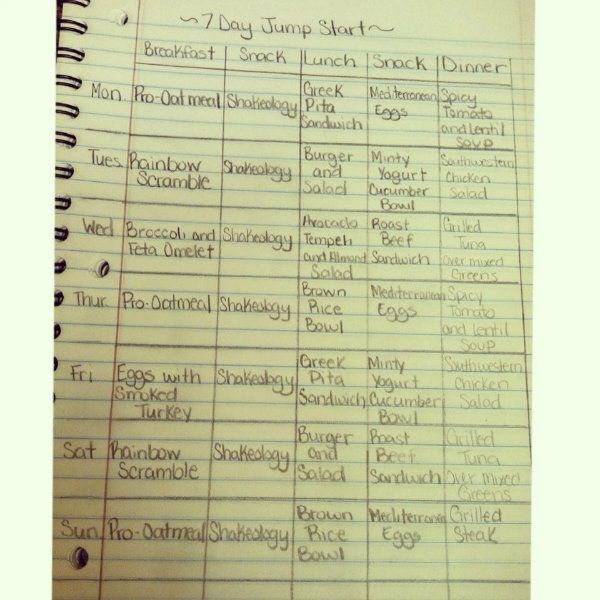 ~7 Day Jump Start~
Breakfast Snack Lunch Snack Dinner
Mon Pro-Oatmeal Shakeology Greek Pita Sandwich Mediterranean Eggs Spicy Tomato and Lentil Soup
Tues Rainbow Scramble Shakeology Burger and Salad Minty Yogurt Cucumber Bowl Southwestern Chicken Salad
Wed Broccoli and Feta Omelet Shakeology Avocado Tempeh and Almond Salad Roast Beef Sandwich Grilled Tuna over mixed Greens
Thur Pro-Oatmeal Shakeology Brown Rice Bowl Mediterranean Eggs Spicy Tomato and lentil Soup
Fri Eggs with Smoked Turkey Shakeology Greek Pita Sandwich Minty Yogurt Cucumber Bowl Southwestern Chicken Salad
Sat Rainbow Scramble Shakeology Burger and Salad Roast Beef Sandwich Grilled Tuna Over Mixed Greens
Sun Pro-Oatmeal Shakeology Brown Rice Bowl Mediterranean Eggs Grilled Steak